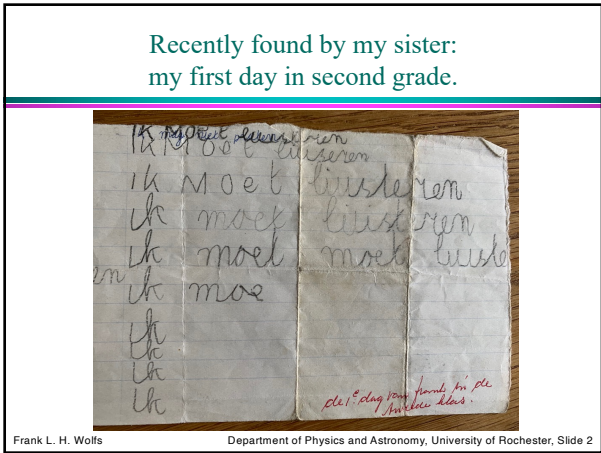 Recently found by my sister:
my first day in second grade.
Ik Moet luisteren
Ik Moet luiseren
Ik Moet luisteren
ik moet luisteren
ik moet moet luiste
en ik moe
ik
ik
ik
ik
de 1e dag van frank in de
tweede klas.
Frank L. H. Wolfs
Department of Physics and Astronomy, University of Rochester, Slide 2